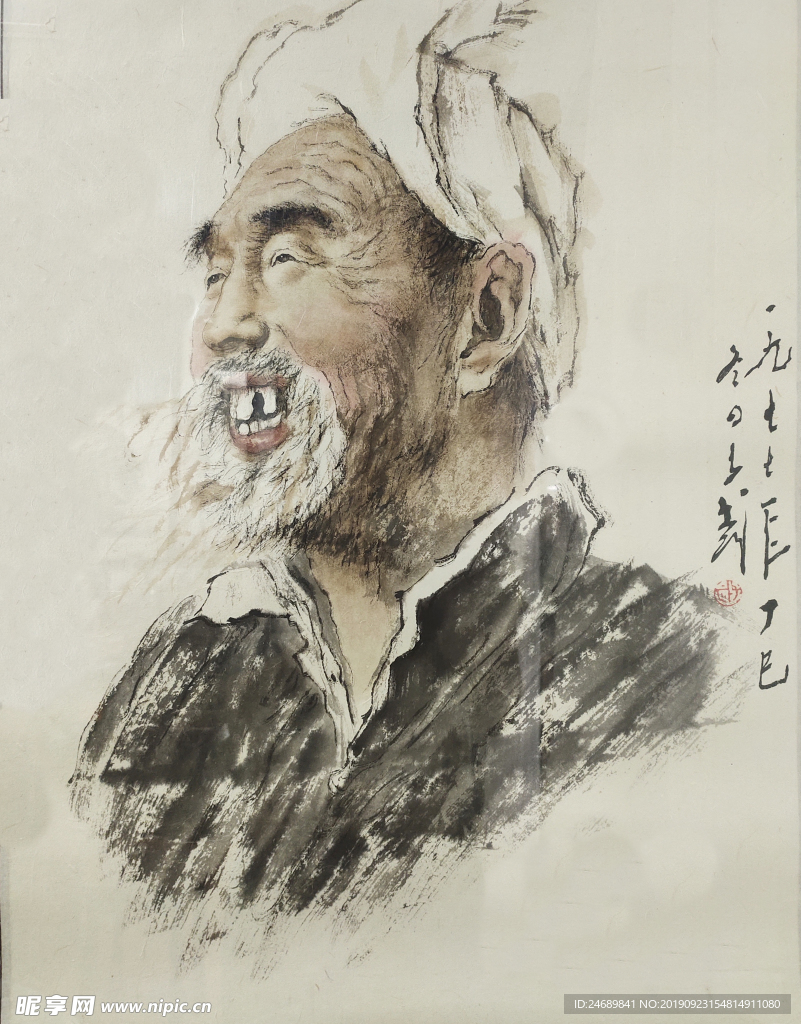 一九七七年丁巳
冬日
昵享网 www.nipic.cn
ID:24689841 NO:20190923154814911080